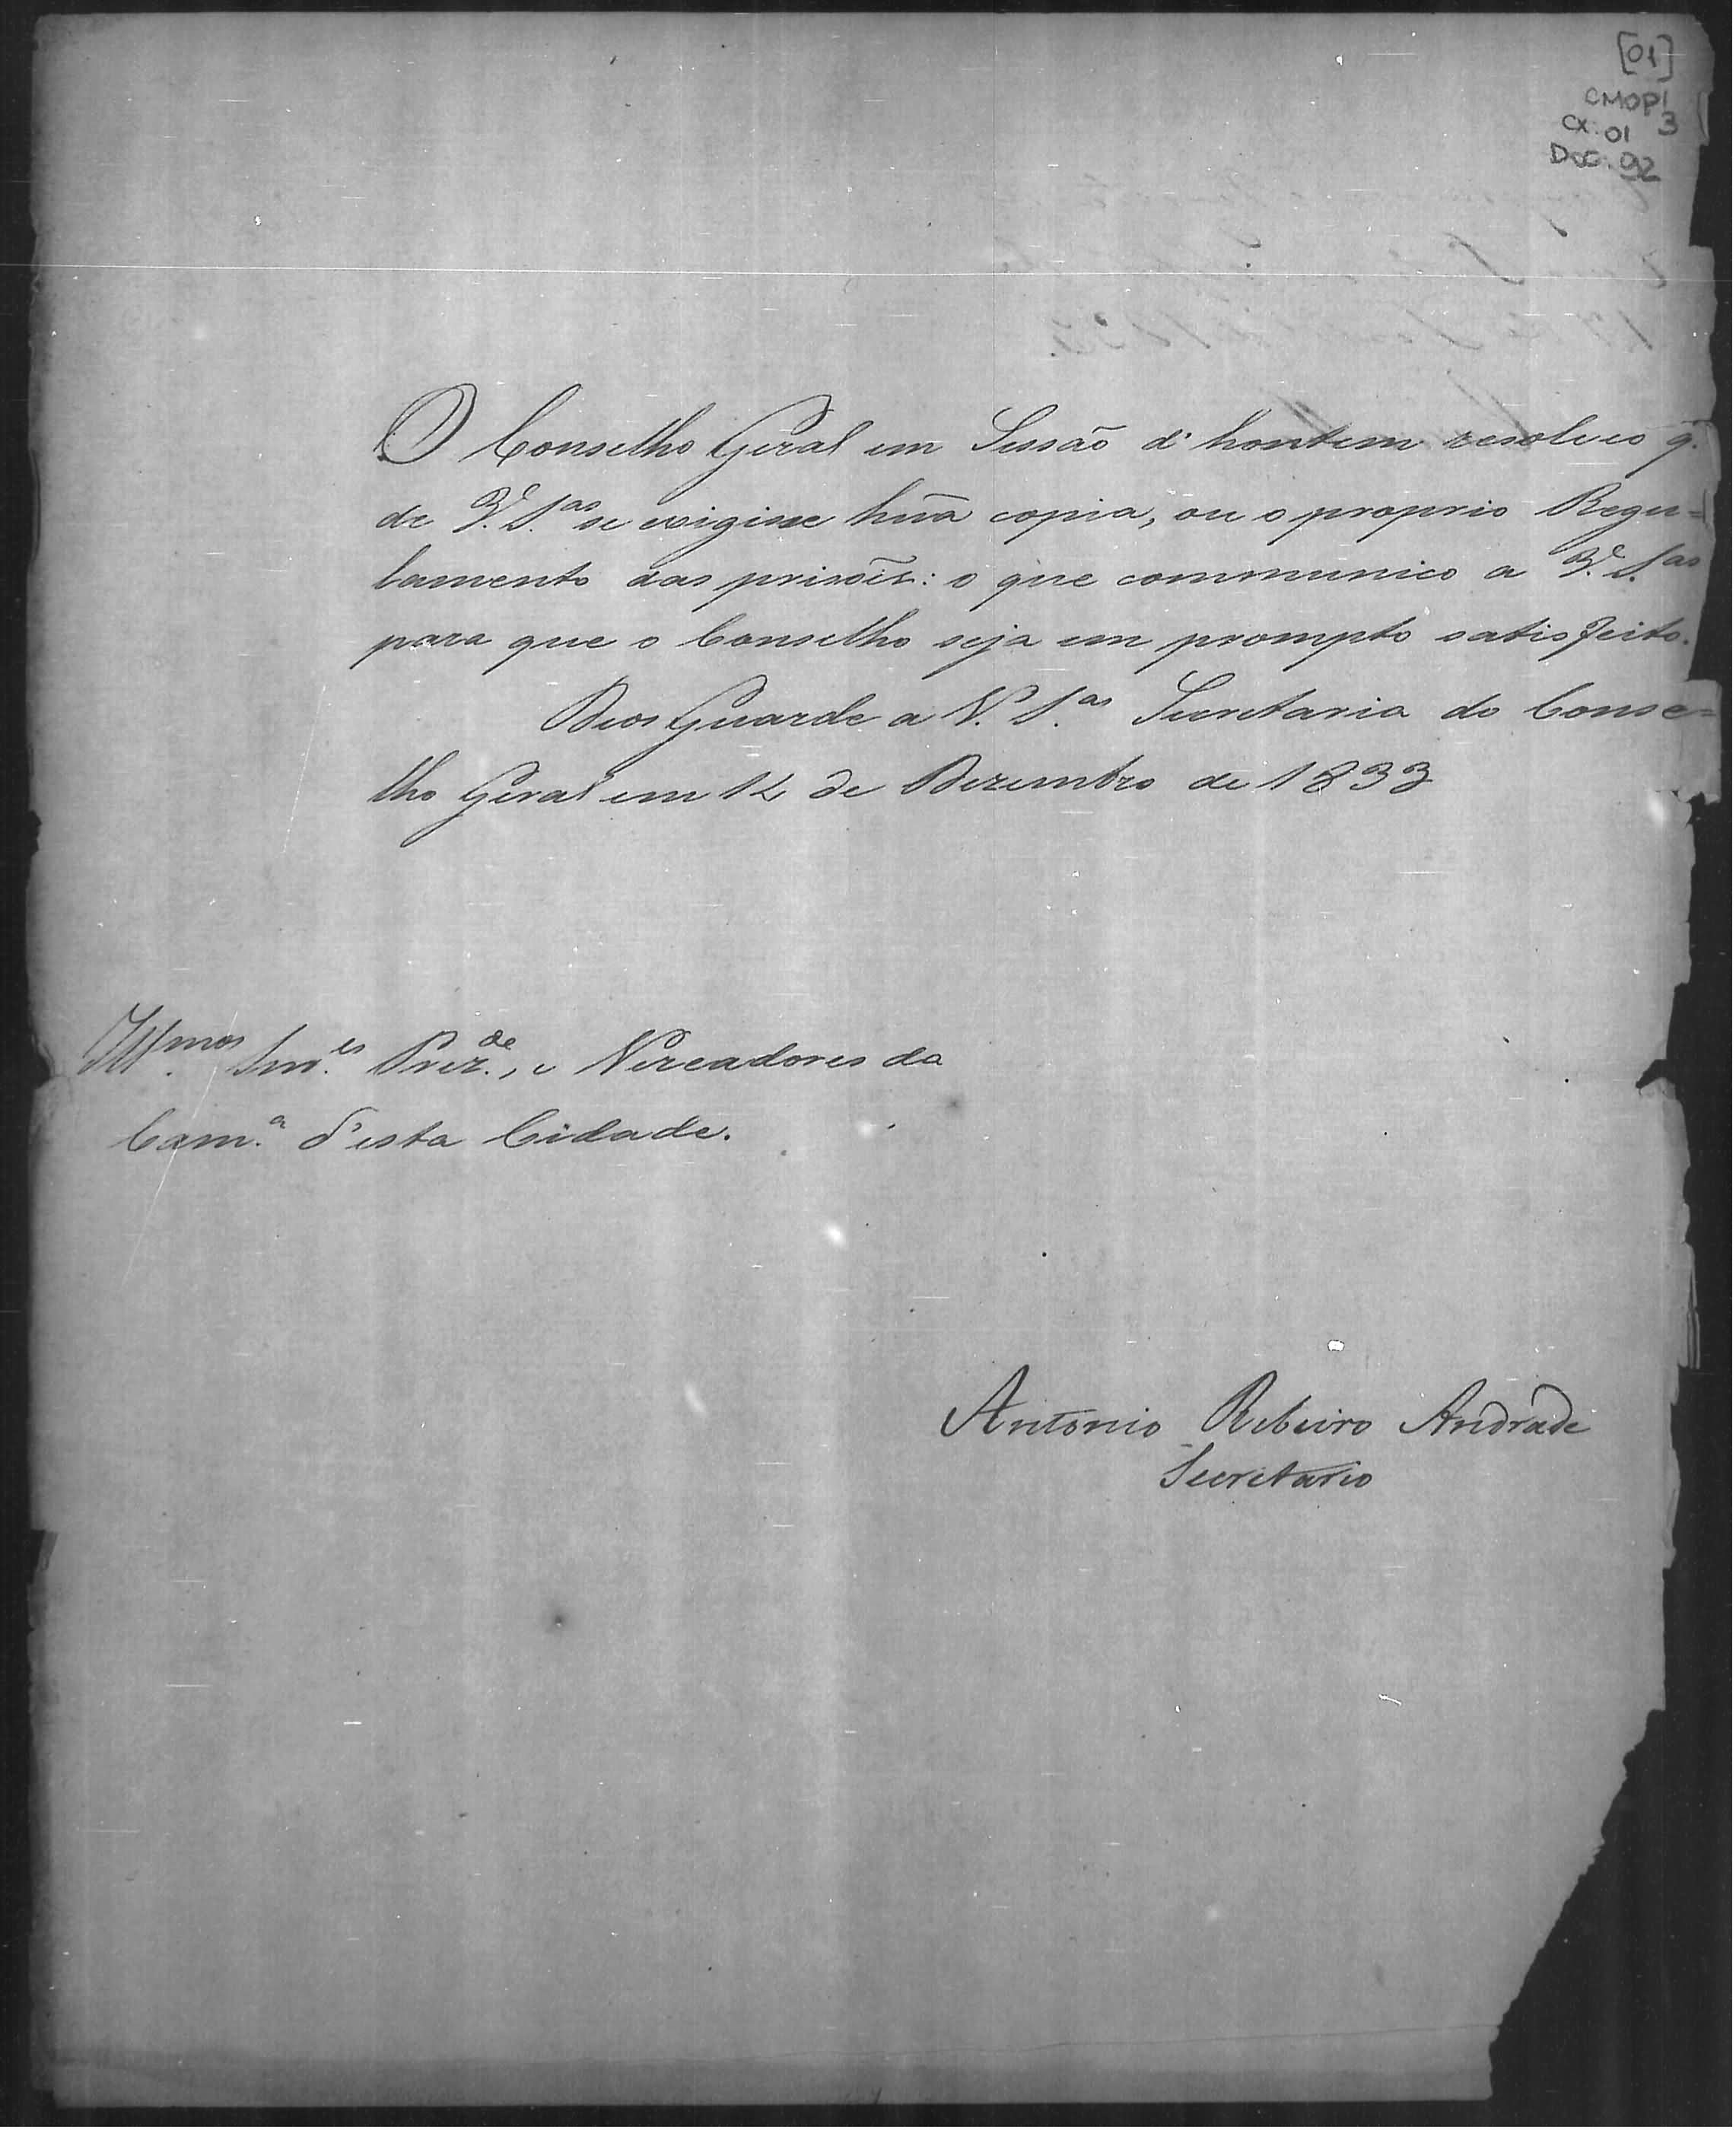 [01]
CMOPI
CX: 01 3
DOC: 02
O Conselho Geral em Sessão d'hontem resolveo q.
de V. S.as se exigisse hũa copia, ou o proprio Regu=
lamento das prisoẽs: o que communico a V. S.as
para que o Conselho seja em prompto satisfeito.
Deos Guarde a V. S.as Secretaria do Conse=
lho Geral em 12 de Dezembro de 1833
Ill.mos Snr.es Prez.de, e Vereadores da
Cam.a d'esta Cidade.
Antonio Ribeiro Andrade
Secretario